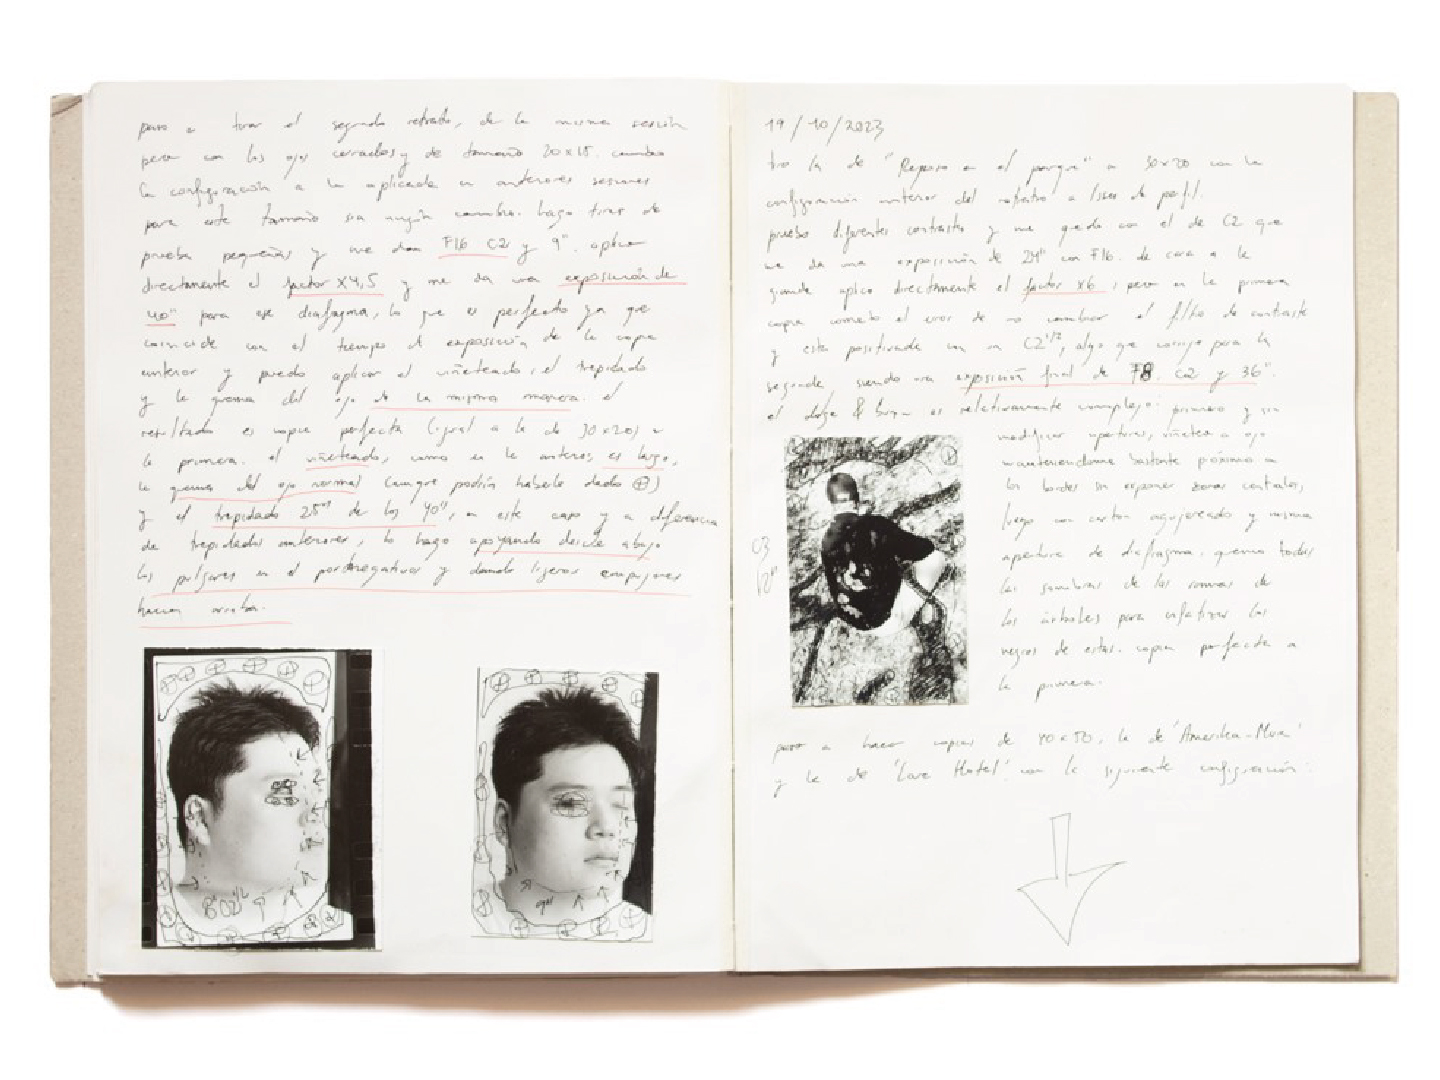 paso a tirar el segundo retrato, de la misma sesión
pero con los ojos cerrados y de tamaño 20x15. cambio
la configuración a la aplicada en anteriores sesiones
para este tamaño sin ningún cambio. hago tiras de
prueba pequeñas y me dan F16 C2 y 9". aplico
directamente el factor x4,5 y me da una exposición de
40" para ese diafragma, lo que es perfecto ya que
coincide con el tiempo de exposición de la copia
anterior y puedo aplicar el viñeteado, el trepidado
y la quema del ojo de la misma manera. el
resultado es copia perfecta (igual a la de 30x20) a
la primera. el viñeteado, como en la anterior, es largo,
la quema del ojo normal (aunque podría haberle dado ⊕)
y el trepidado de los 40", en este caso y a diferencia
de trepidados anteriores, lo hago apoyando desde abajo
los pulgares en el portanegativos y dando ligeros empujones
hacia arriba.
8" C2 1/2
9"
19/10/2023
tiro la de "Reposo en el parque" a 30x20 con la
configuración anterior del retrato a de perfil.
pruebo diferentes contrastes y me quedo con el de C2 que
me da una exposición de 24" con F16. de cara a la
grande aplico directamente el factor x6, pero en la primera
copia cometo el error de no cambiar el filtro de contraste
y está positivada con un C2 1/2, algo que corrijo para la
segunda, siendo una exposición final de F8, C2 y 36".
el dodge & burn es relativamente complejo: primero y sin
modificar apertura, viñeteo a ojo
manteniéndome bastante próximo a
los bordes sin exponer zonas centrales,
luego con cartón agujereado y misma
apertura de diafragma, quemo todas
las sombras de las ramas de
los árboles para enfatizar los
negros de estas. copia perfecta a
la primera.
12"
paso a hacer copias de 40x50, la de
y la de 'Love Hotel' con la siguiente configuración: